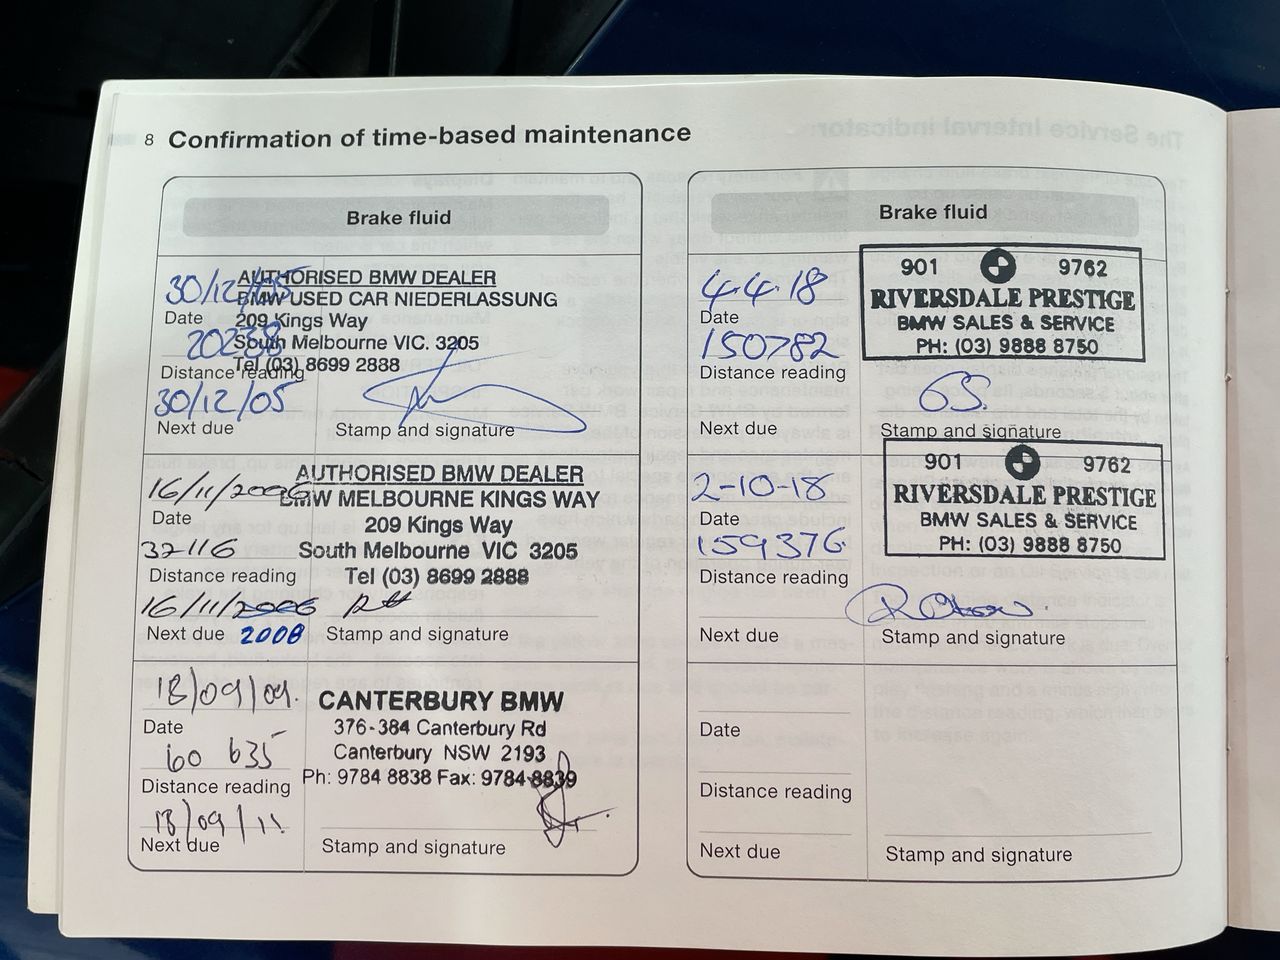 8 Confirmation of time-based maintenance
Brake fluid
30/12/05
AUTHORISED BMW DEALER
BMW USED CAR NIEDERLASSUNG
Date
209 Kings Way
20238
South Melbourne VIC. 3205
Distance reading
Tel (03) 8699 2888
30/12/05
Next due
Stamp and signature
AUTHORISED BMW DEALER
16/11/2006
BMW MELBOURNE KINGS WAY
Date
209 Kings Way
32116
South Melbourne VIC 3205
Distance reading
Tel (03) 8699 2888
16/11/2006
Next due 2008
Stamp and signature
18/09/09.
CANTERBURY BMW
Date
376-384 Canterbury Rd
60 635
Canterbury NSW 2193
Distance reading
Ph: 9784 8838 Fax: 9784 8839
18/09/11
Next due
Stamp and signature
Brake fluid
4.4.18
901 9762
RIVERSDALE PRESTIGE
Date
BMW SALES & SERVICE
150782
PH: (03) 9888 8750
Distance reading
GS.
Next due
Stamp and signature
901 9762
2-10-18
RIVERSDALE PRESTIGE
Date
BMW SALES & SERVICE
159376
PH: (03) 9888 8750
Distance reading
Next due
Stamp and signature
Date
Distance reading
Next due
Stamp and signature